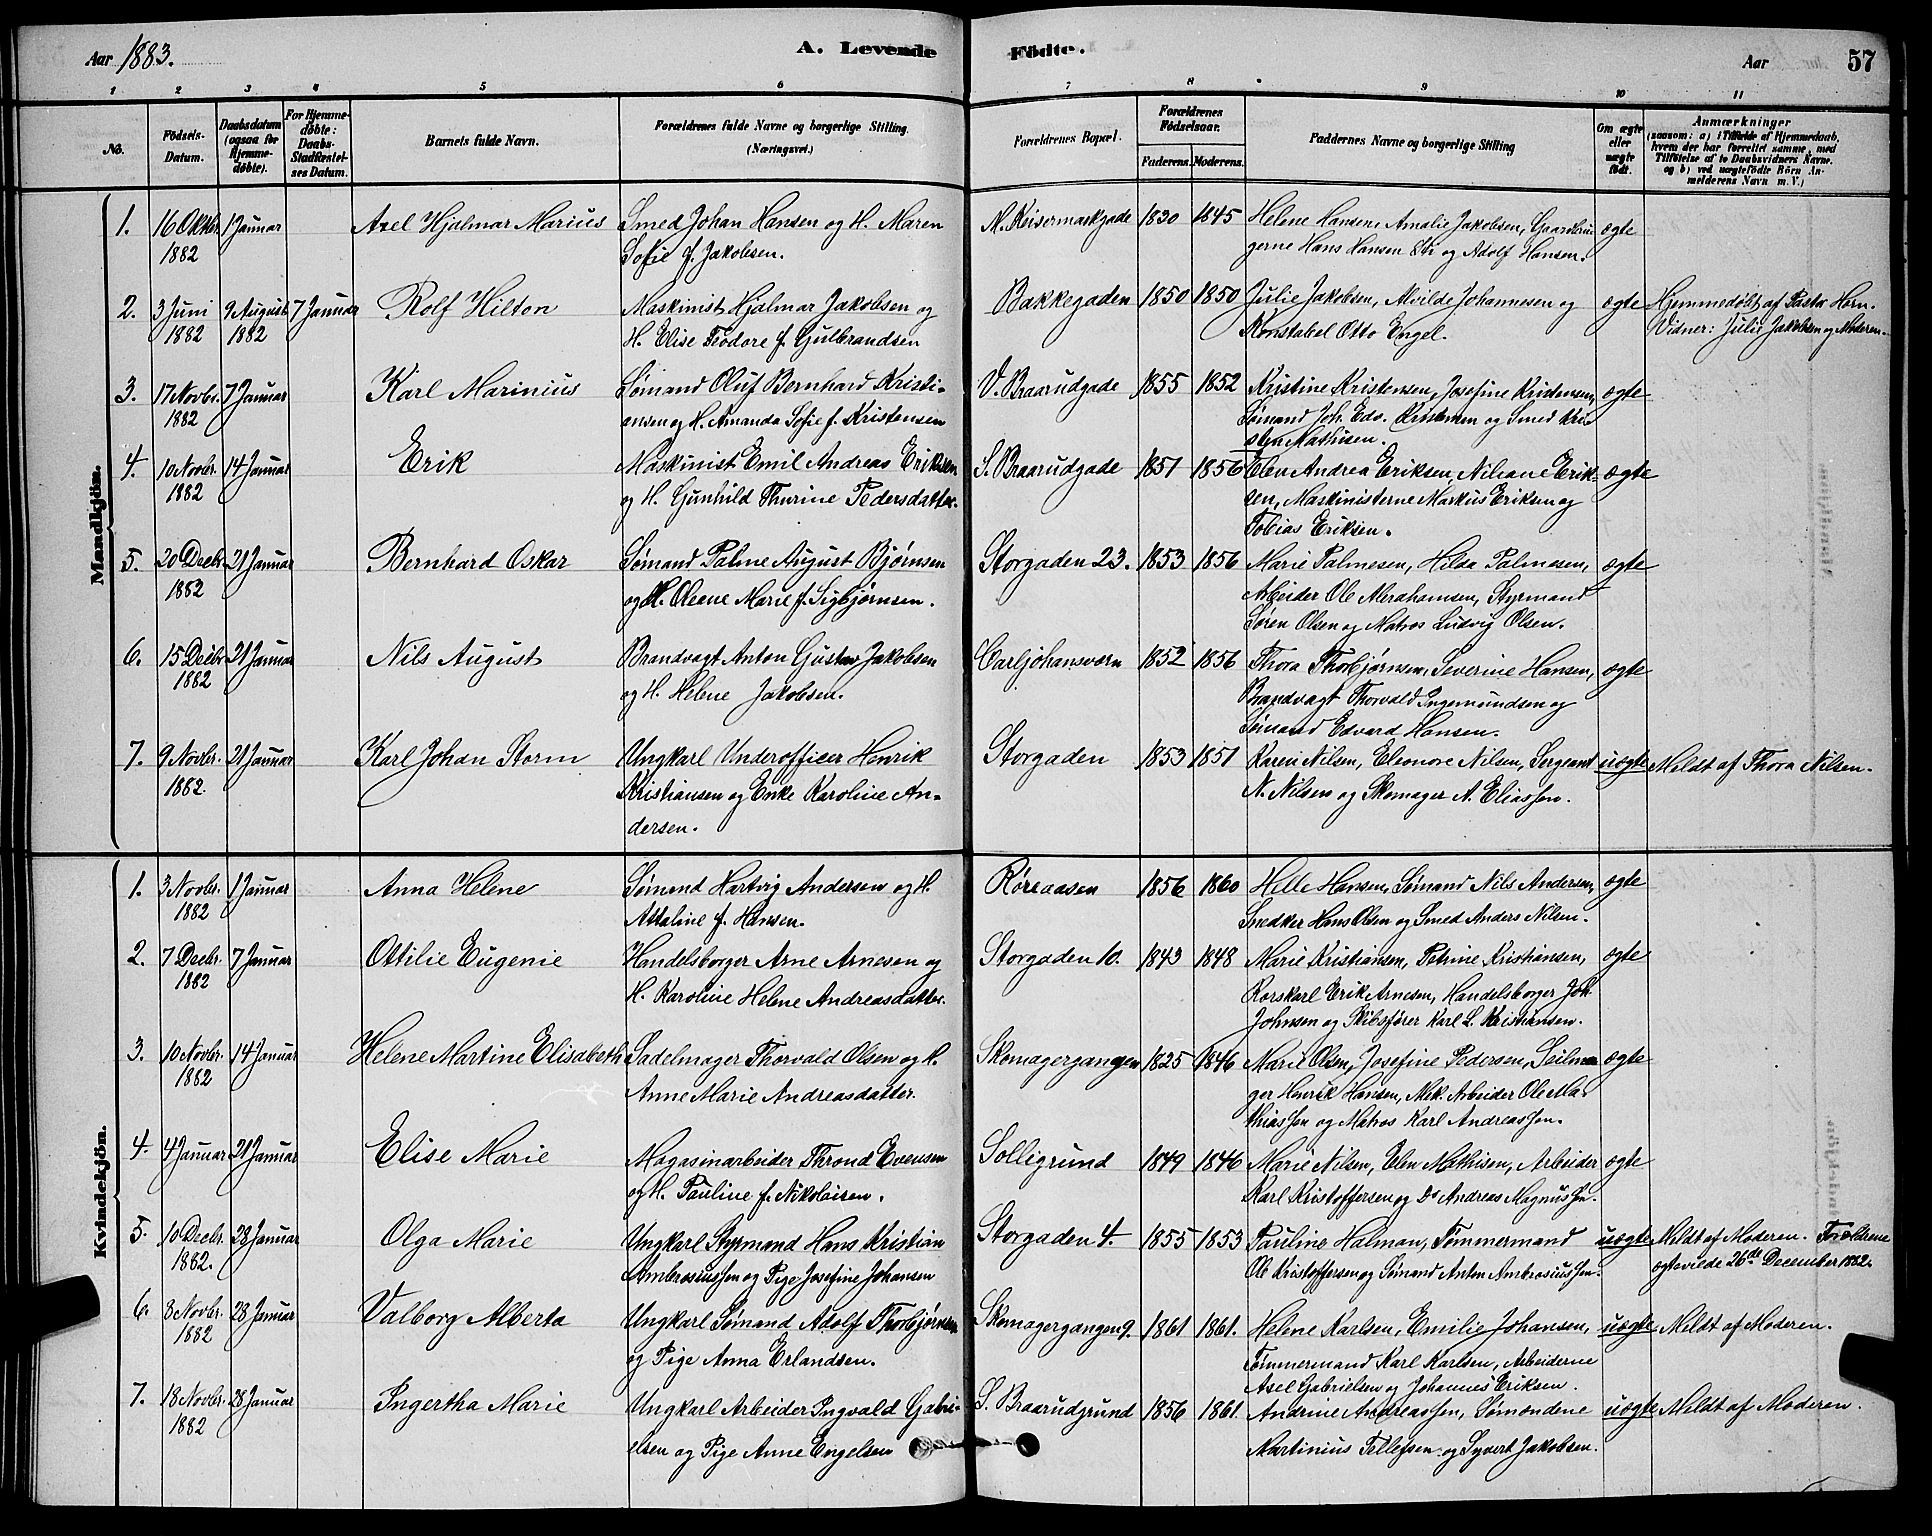 Aar 1883.
A. Levende Födte.
Aar
57
1 2 3 4 5 6 7 8 9 10 11
No.
Födsels-Datum.
Daabsdatum (ogsaa for Hjemmedöbte).
For Hjemmedöbte: Daabs-Stadfæstelses Datum.
Barnets fulde Navn.
Forældrenes fulde Navne og borgerlige Stilling. (Næringsvei.)
Forældrenes Bopæl.
Forældrenes Födselsaar.
Faderens. Moderens.
Faddernes Navne og borgerlige Stilling
Om ægte eller uægte födt.
Anmærkninger
(saasom: a) i Tilfælde af Hjemmedaab, hvem der har forrettet samme, med Tilföielse af to Daabsvidners Navne. og b) ved uægtefödte Börn Anmelderens Navn m. V.)
Mandkjön.
1. 16 Oktbr. 1882 1 Januar Axel Hjalmar Marius Smed Johan Hansen og H. Maren
Sofie f. Jakobsen.
N. Keisermarkgade 1830 1845 Helene Hansen, Amalie Jakobsen, Gaardbru
gerne Hans Hansen Str og Adolf Hansen. ægte
2. 3 Juni 1882 9 August 1882 7 Januar Rolf Hilton Maskinist Hjalmar Jakobsen og
H. Elise Teodore f. Gulbrandsen
Bakkegaden 1850 1850 Julie Jakobsen, Alvilde Johannesen og
Konstabel Otto Engel. ægte Hjemmedøbt af Pastor Horn.
Vidner: Julie Jakobsen og Moderen.
3. 17 Novbr. 1882 7 Januar Karl Marinius Sømand Oluf Bernhard Kristi-
ansen og H. Amanda Sofie f. Kristensen
V. Braarudgade 1855 1852 Kristine Kristensen, Josefine Kristensen,
Sømand Joh. Edv. Kristensen og Smed Kri
sten Mathisen. ægte
4. 10 Novbr. 1882 14 Januar Erik Maskinist Emil Andreas Eriksen
og H. Gunhild Thurine Pedersdatter.
S. Braarudgade 1851 1856 Elen Andrea Eriksen, Niliane Erik-
sen, Maskinisterne Markus Eriksen og
Tobias Eriksen. ægte
5. 20 Decbr. 1882 21 Januar Bernhard Oskar Sømand Palme August Bjørnsen
og H. Oleane Marie f. Sigbjørnsen.
Storgaden 23. 1853 1856 Marie Palmesen, Hilda Palmesen,
Arbeider Ole Abrahamsen, Styrmand
Søren Olsen og Matros Ludvig Olsen. ægte
6. 15 Decbr 1882 21 Januar Nils August Brandvagt Anton Gustav Jakobsen
og H. Helene Jakobsen.
Carljohansværn 1852 1856 Thora Thorbjørnsen, Severine Hansen,
Brandvagt Thorvald Ingemundsen og
Sømand Edvard Hansen. ægte
7. 9 Novbr. 1882 21 Januar Karl Johan Storm Ungkarl Underofficer Henrik
Kristiansen og Enke Karoline An-
dersen.
Storgaden 1853 1851 Karen Nilsen, Eleonore Nilsen, Sergeant
N. Nilsen og Skomager A. Eliassen. uægte Meldt af Thora Nilsen.
Kvindekjön.
1. 3 Novbr. 1882 1 Januar Anna Helene Sømand Hartvig Andersen og H.
Attaline f. Hansen.
Røreaasen 1856 1860 Helle Hansen, Sømand Nils Andersen,
Snedker Hans Olsen og Smed Anders Nilsen. ægte
2. 7 Decbr. 1882 7 Januar Ottilie Eugenie Handelsborger Arne Arnesen og
H. Karoline Helene Andreasdatter.
Storgaden 10. 1843 1848 Marie Kristiansen, Petrine Kristiansen,
Rorskarl Erik Arnesen, Handelsborger Joh.
Johnsen og Skibsfører Karl L. Kristiansen. ægte
3. 10 Novbr. 1882 14 Januar Helene Martine Elisabeth Sadelmager Thorvald Olsen og H.
Anne Marie Andreasdatter.
Skomagergangen 1825 1846 Marie Olsen, Josefine Pedersen, Seilma
ger Henrik Hansen, Mek. Arbeider Ole Ma
thiassen og Matros Karl Andreassen. ægte
4. 4 Januar 21 Januar Elise Marie Magasinarbeider Thrond Evensen
og H. Pauline f. Nikolaisen.
Solligrund 1849 1846 Marie Nilsen, Elen Mathisen, Arbeider
Karl Kristoffersen og Do Andreas Magnussen. ægte
5. 10 Decbr. 1882. 28 Januar Olga Marie Ungkarl Styrmand Hans Kristian
Ambrosiussen og Pige Josefine Johansen
Storgaden 4. 1855 1853 Pauline Halman, Tømmermand
Ole Kristoffersen og Sømand Anton Ambrosiussen. uægte Meldt af Moderen. Forældrene
ægteviede 26de December 1882.
6. 8 Novbr. 1882 28 Januar Valborg Alberta Ungkarl Sømand Adolf Thorbjørnsen
og Pige Anna Erlandsen.
Skomagergangen 9. 1861 1861. Helene Karlsen, Emilie Johansen,
Tømmermand Karl Karlsen, Arbeiderne
Axel Gabrielsen og Johannes Eriksen. uægte Meldt af Moderen.
7. 18 Novbr. 1882 28 Januar Ingertha Marie Ungkarl Arbeider Ingvald Gabri-
elsen og Pige Anne Engelsen
S. Braarudgrund 1856 1861. Andrine Andreassen, Sømændene
Martinius Tellefsen og Syvert Jakobsen. uægte Meldt af Moderen.